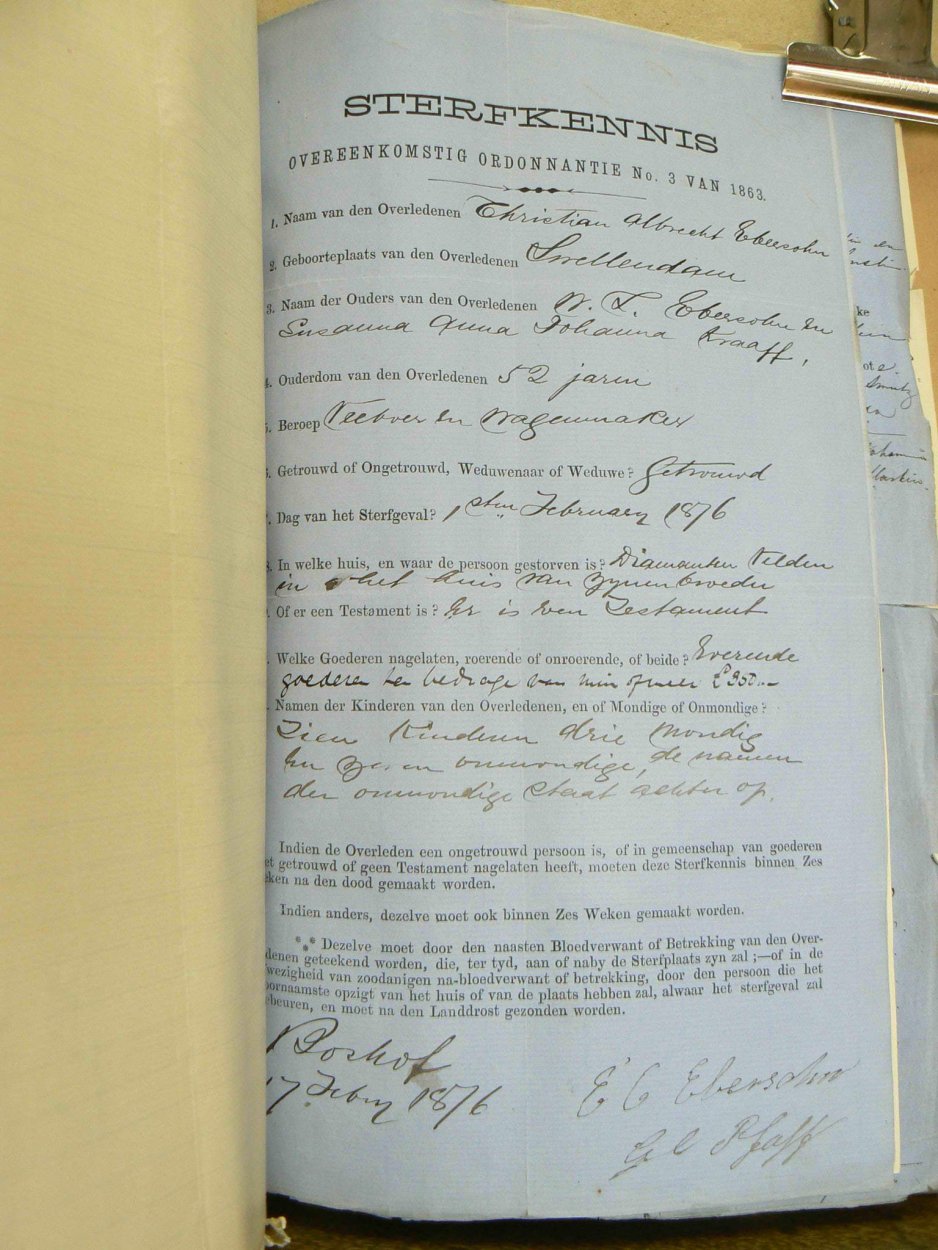 STERFKENNIS
OVEREENKOMSTIG ORDONNANTIE No. 3 VAN 1863.
1. Naam van den Overledenen Christian Albrecht Ebersohn
2. Geboorteplaats van den Overledenen Swellendam
3. Naam der Ouders van den Overledenen W. L. Ebersohn En
Susanna Anna Johanna Kraaff,
4. Ouderdom van den Overledenen 52 jaren
5. Beroep Veeboer En Wagenmaker
Getrouwd of Ongetrouwd, Weduwenaar of Weduwe? Getrouwd
Dag van het Sterfgeval? 1sten February 1876
In welke huis, en waar de persoon gestorven is? Diamanten Velden
in het huis van zynen broeder
Of er een Testament is? Er is een Testament
Welke Goederen nagelaten, roerende of onroerende, of beide?
goederen ten bedrage van min of meer £350..-
Namen der Kinderen van den Overledenen, en of Mondige of Onmondige?
Tien Kinderen drie Mondig
En zeven onmondige, de namen
der onmondige Staat achter op.
Indien de Overleden een ongetrouwd persoon is, of in gemeenschap van goederen
getrouwd of geen Testament nagelaten heeft, moeten deze Sterfkennis binnen Zes
na den dood gemaakt worden.
Indien anders, dezelve moet ook binnen Zes Weken gemaakt worden.
*** Dezelve moet door den naasten Bloedverwant of Betrekking van den Over-
denen geteekend worden, die, ter tyd, aan of naby de Sterfplaats zyn zal;—of in de
wezigheid van zoodanigen na-bloedverwant of betrekking, door den persoon die het
oornaamste opzigt van het huis of van de plaats hebben zal, alwaar het sterfgeval zal
ebeuren, en moet na den Landdrost gezonden worden.
Boshof
17 Febry 1876
E C Ebersohn
G C Pfaff